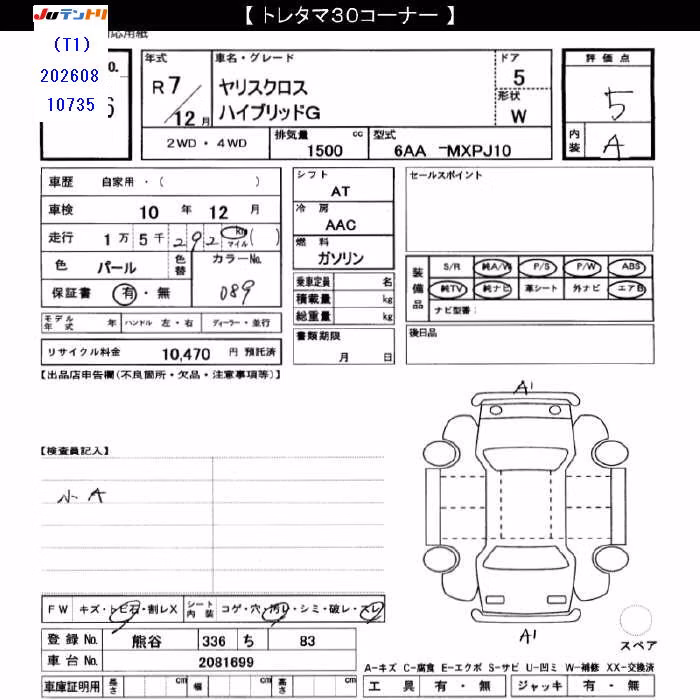 【 トレタマ30コーナー 】
JUテントリ
応用紙
(T1)
202608
10735
o.
6
年式
R 7
12 月
車名・グレード
ヤリスクロス
ハイブリッドG
ドア
5
形状
W
評価点
5
内装
A
2WD ・ 4WD
排気量 cc
1500
型式
6AA -MXPJ10
車歴 自家用 ・ ( )
車検 10 年 12 月
走行 1 万 5 千 2 9 2 km マイル ( )
色 パール
色替
カラーNo.
089
保証書 有 ・ 無
モデル年式 年 ハンドル 左・右 ディーラー・並行
リサイクル料金 10,470 円 預託済
シフト
AT
冷房
AAC
燃料
ガソリン
乗車定員 名
積載量 kg
総重量 kg
書類期限
月 日
セールスポイント
装備品
S/R 純A/W P/S P/W ABS
純TV 純ナビ 革シート 外ナビ エアB
ナビ型番:
後日品
【出品店申告欄(不良箇所・欠品・注意事項等)】
【検査員記入】
小 A
A1
A1
スペア
FW キズ・トビ石・割レX シート内装 コゲ・穴・汚レ・シミ・破レ・スレ
登録No. 熊谷 336 ち 83
車台No. 2081699
車庫証明用 長さ cm 幅 cm 高さ cm
A-キズ C-腐食 E-エクボ S-サビ U-凹ミ W-補修 XX-交換済
工具 有 ・ 無 ジャッキ 有 ・ 無